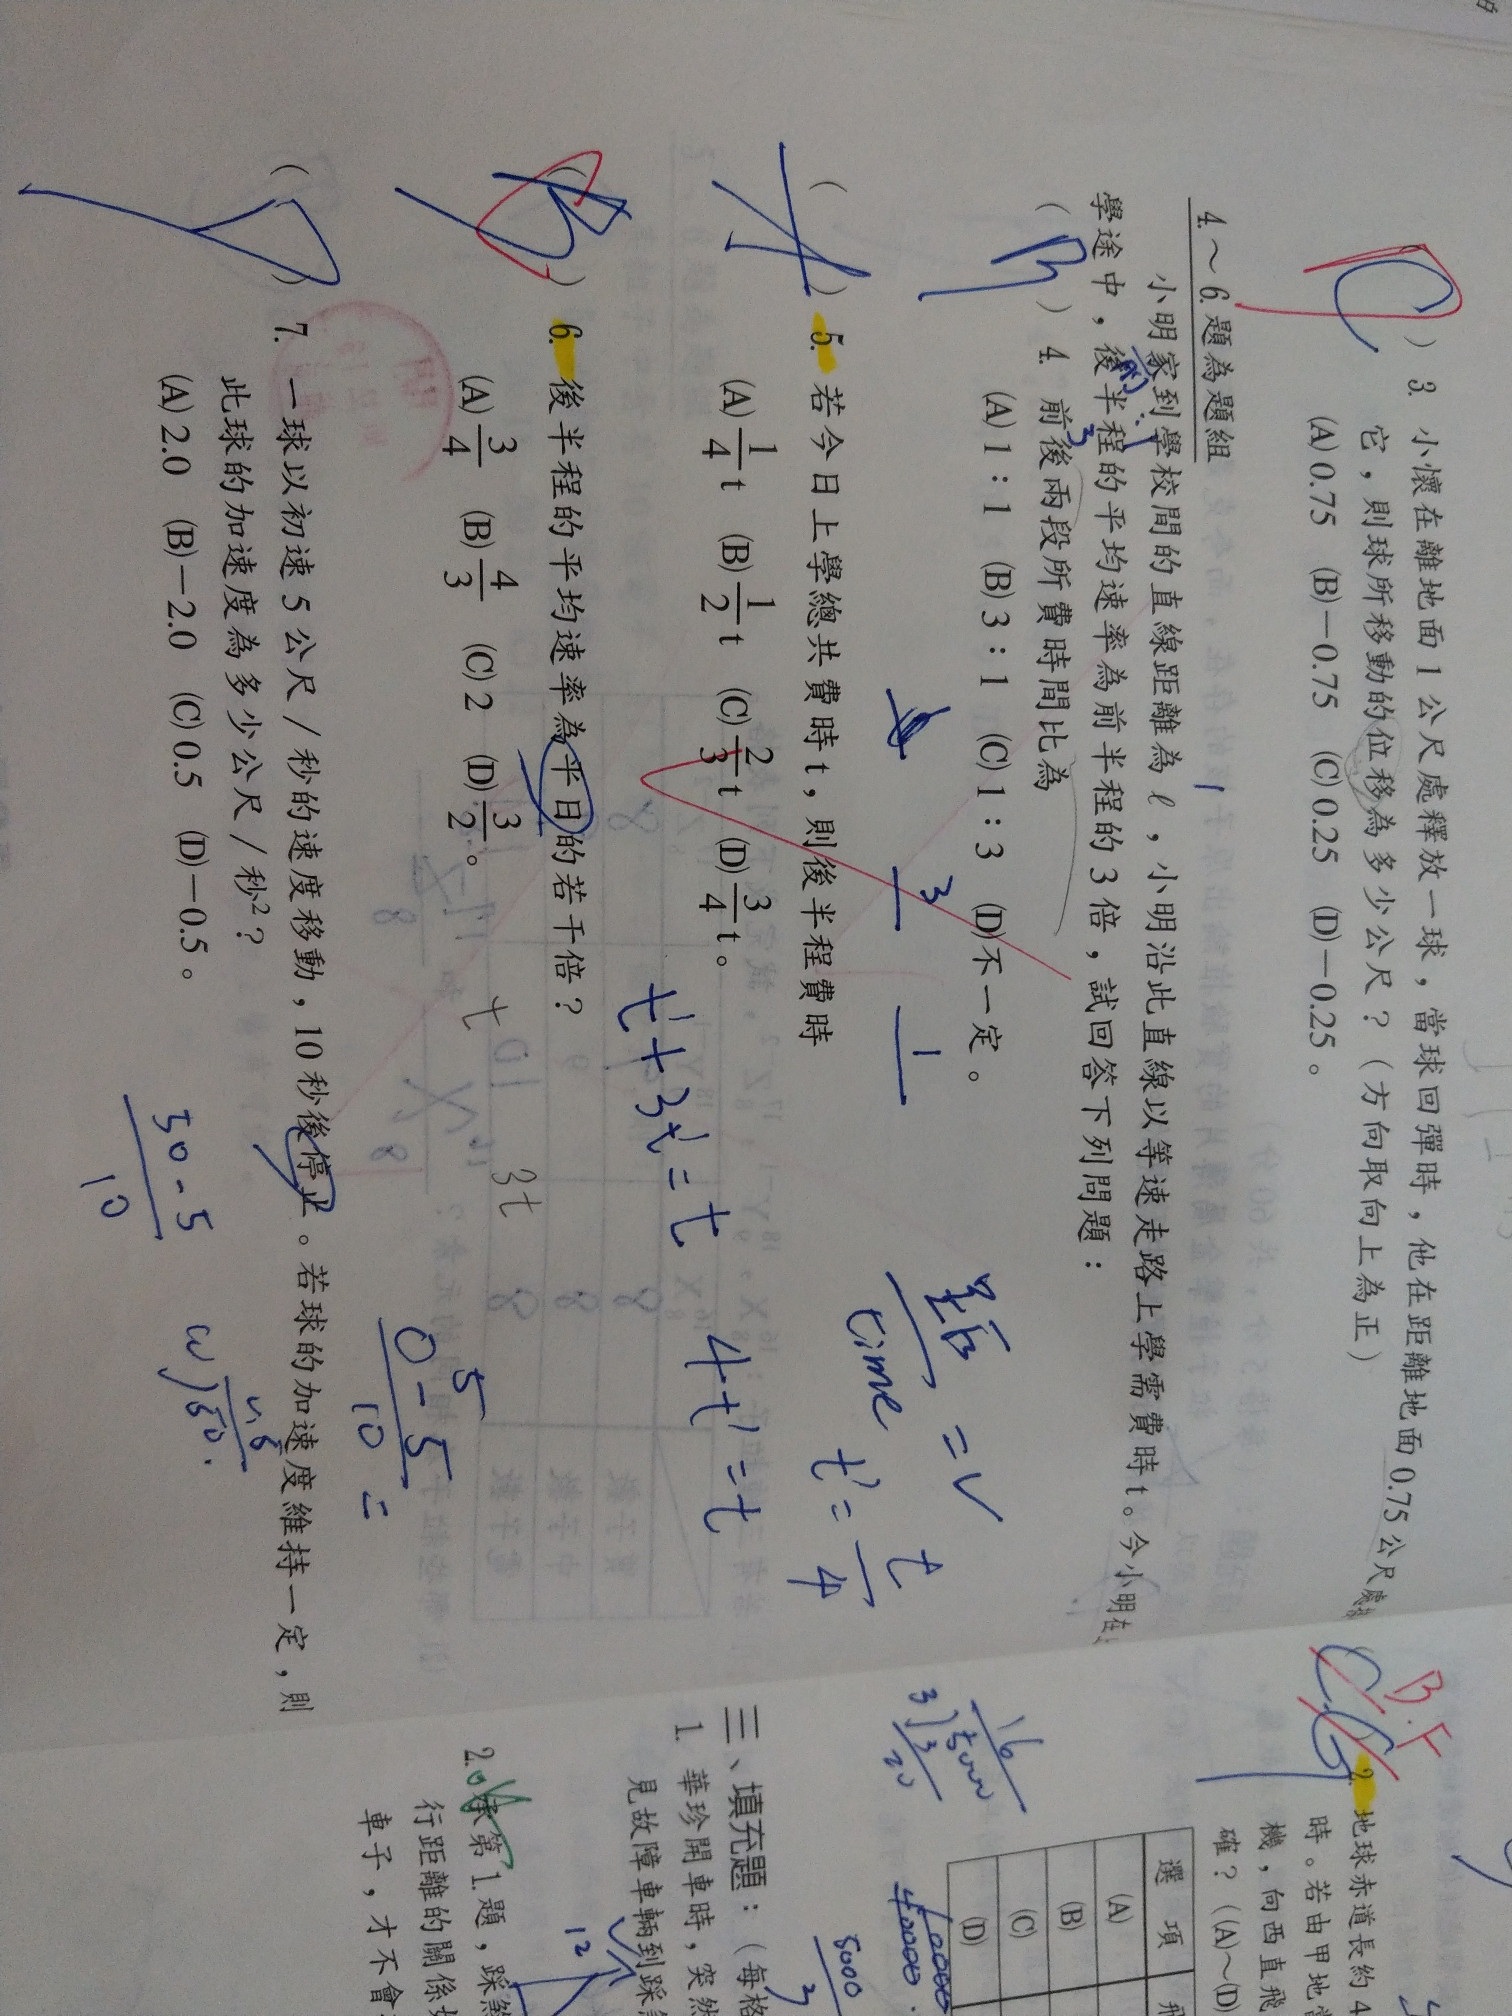 C ) 3. 小懷在離地面 1 公尺處釋放一球，當球回彈時，他在距離地面 0.75 公尺處
它，則球所移動的位移為多少公尺？（方向取向上為正）
(A) 0.75 (B)－0.75 (C) 0.25 (D)－0.25。
4.～6. 題為題組
小明家到學校間的直線距離為 ℓ，小明沿此直線以等速走路上學需費時 t。今小明在
學途中，後半程的平均速率為前半程的 3 倍，試回答下列問題：
( B ) 4. 前後兩段所費時間比為
(A) 1：1 (B) 3：1 (C) 1：3 (D)不一定。
3
1
( A ) 5. 若今日上學總共費時 t，則後半程費時
(A) 1/4 t (B) 1/2 t (C) 2/3 t (D) 3/4 t。
time
= V
t' = t/4
t'+3t'=t
4t'=t
( B ) 6. 後半程的平均速率為平日的若干倍？
(A) 3/4 (B) 4/3 (C) 2 (D) 3/2。
t 3t
( D ) 7. 一球以初速 5 公尺／秒的速度移動，10 秒後停止。若球的加速度維持一定，則
此球的加速度為多少公尺／秒²？
(A) 2.0 (B)－2.0 (C) 0.5 (D)－0.5。
0-5
10 =
50-5
10
B.F
2. 地球赤道長約 4
時。若由甲地
機，向西直飛
確？((A)～(D)
選項 飛
(A)
(B)
(C)
(D)
16
40000
三、填充題：（每格
1. 華珍開車時，突然
見故障車輛到踩
2. 承第 1. 題，踩
行距離的關係
車子，才不會
12